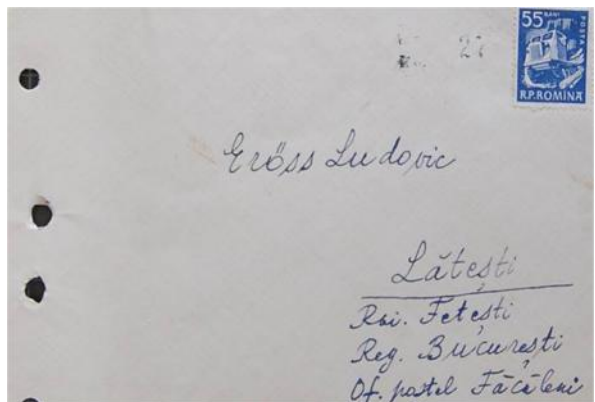 55 BANI
POSTA
R.P.ROMINA
Erőss Ludovic
Lătești
Rai. Fetești
Reg. București
Of. postal Făcăleni